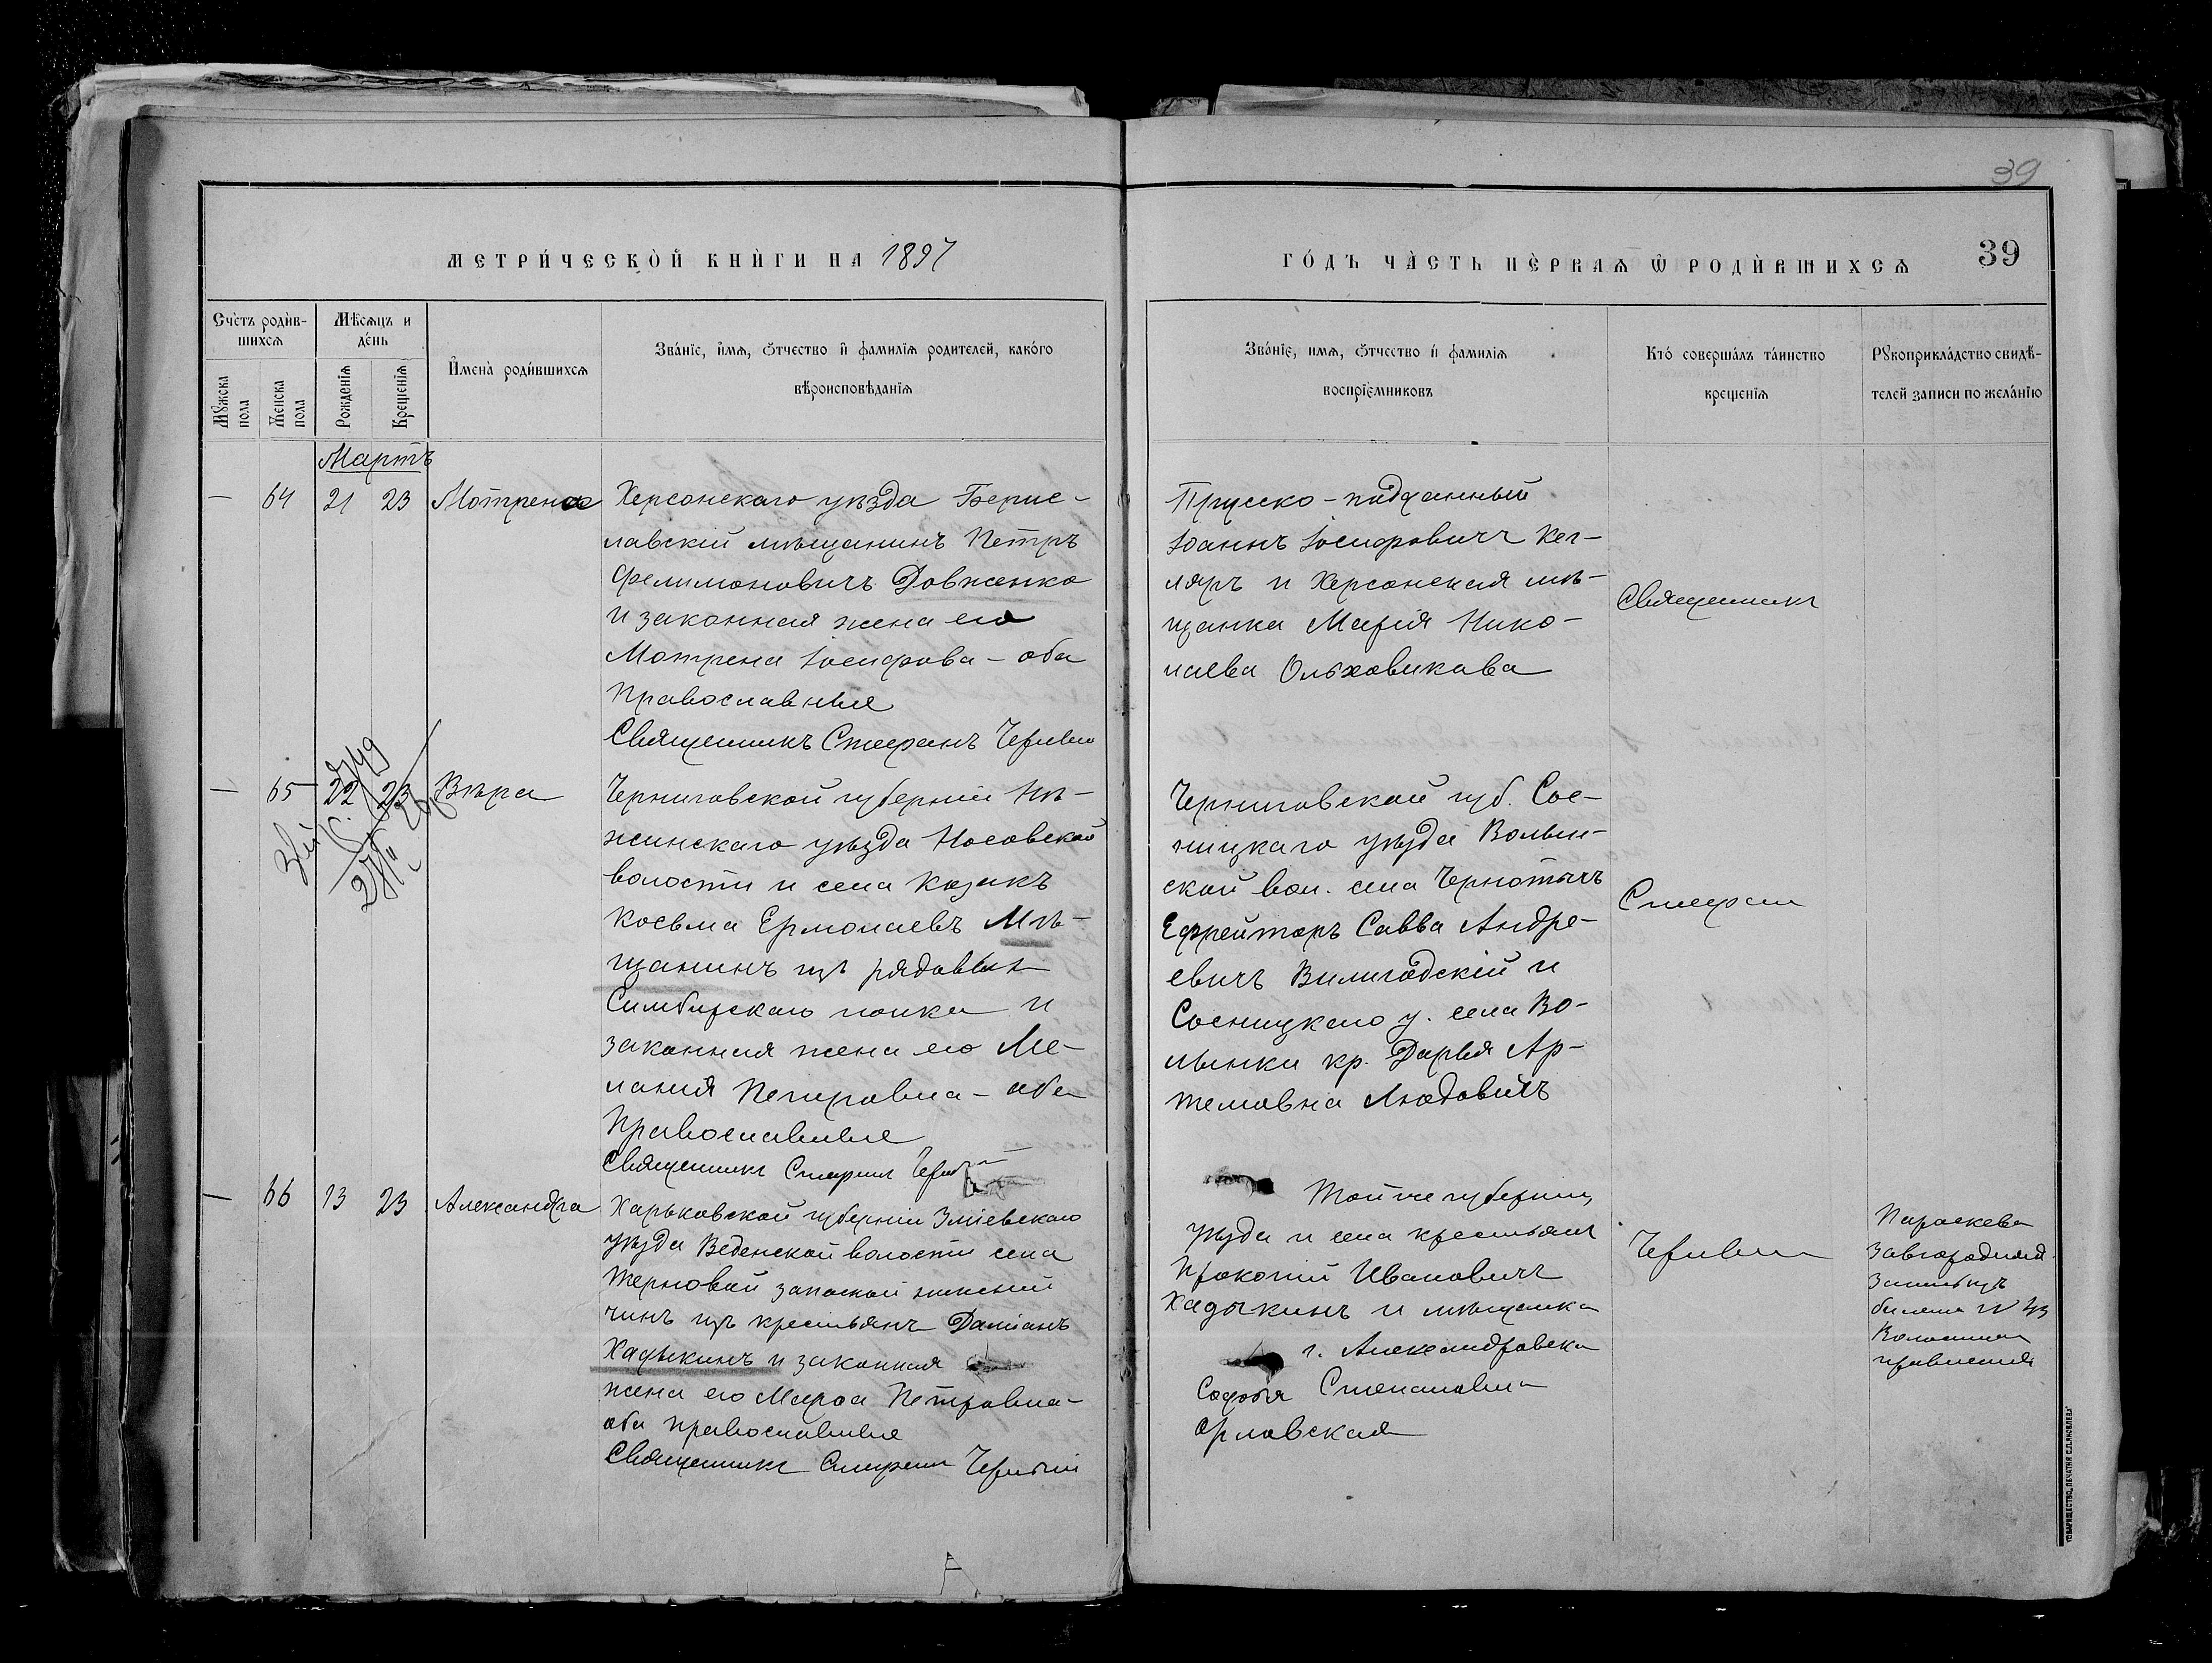 39
МЕТРИ́ЧЕСКОЙ КНИ́ГИ НА 1897
ГО́ДЪ ЧА́СТЬ ПЕ́РВАЯ Ѿ РОДИ́ВШИХСЯ
39
Сче́тъ роди́в-
шихся
Мѣ́сяцъ и
де́нь
Му́жеска
пола
Же́нска
пола
Рожденїя
Крещенїя
И҆мена̀ роди́вшихся
Зва́нїе, и҆мя, ѻ҆тчество и҆ фамилїя родителей, како́го
вѣроисповѣ́данїя
Зва́нїе, имя, ѻ҆тчество и҆ фамилїя
воспрїе́мниковъ
Кто́ соверша́лъ та́инство
креще́нїя
Рꙋкоприкла́дство свидѣ́-
телей записи по жела́нїю
Мартъ
— 64 21 23 Мотрена
Херсонскаго уѣзда Берис-
лавскій мѣщанинъ Петръ
Филимоновичъ Довженко
и законная жена его
Мотрена Іосифова - оба
православные
Священникъ Стефанъ
Прусско-подданный
Іоаннъ Іосифовичъ Кег-
ляръ и Херсонская мѣ-
щанка Марія Нико-
лаева Ольховикова
Священникъ
— 65 22 23 Вѣра
Черниговской губерніи Нѣ-
жинскаго уѣзда Носовской
волости и села козакъ
Косьма Ермолаевъ Мѣ-
щанинъ изъ рядовыхъ
Симбирскаго полка и
законная жена его Ме-
ланія Петровна - оба
православные
Священникъ Стефанъ
Черниговской губ. Сос-
ницкаго уѣзда Волын-
ской вол. села Чернотичъ
Ефрейторъ Савва Андре-
евичъ Вилигодскій и
Сосницкаго у. села Во-
лынки кр. Дарья Ар-
темовна Людовичъ
Стефанъ
— 66 13 23 Александра
Харьковской губерніи Зміевскаго
уѣзда Веденской волости села
Терновой запасной нижній
чинъ изъ крестьянъ Даміанъ
Хадыкинъ и законная
жена его Марѳа Петровна -
оба православные
Священникъ Стефанъ
Той же губерніи,
уѣзда и села крестьянинъ
Прокопій Ивановичъ
Хадыкинъ и мѣщанка
г. Александровска
Софья Степановна
Орловская
Параскева
Завгородняя
билета № 43
Волостного
правленія
А
ТОВАРИЩЕСТВО „ПЕЧАТНЯ С.П.ЯКОВЛЕВА"